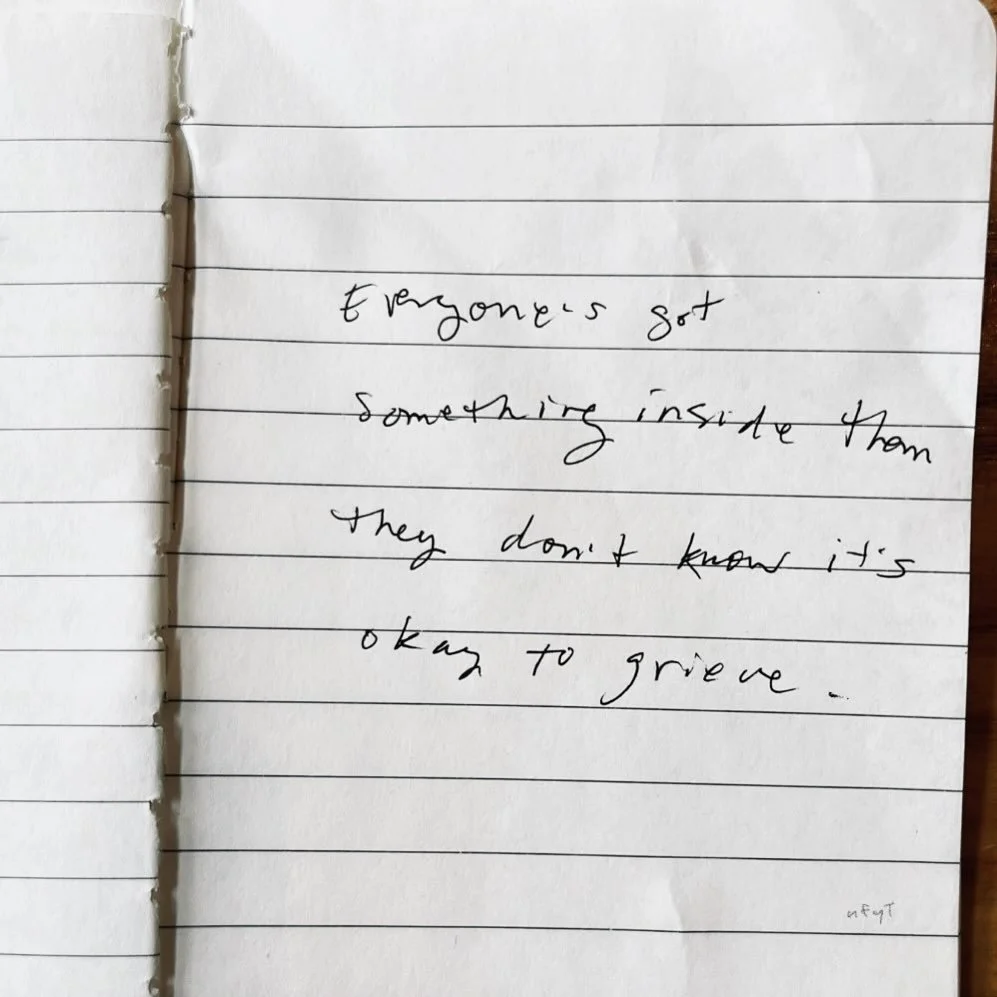 Everyone's got
something inside them
they don't know it's
okay to grieve.